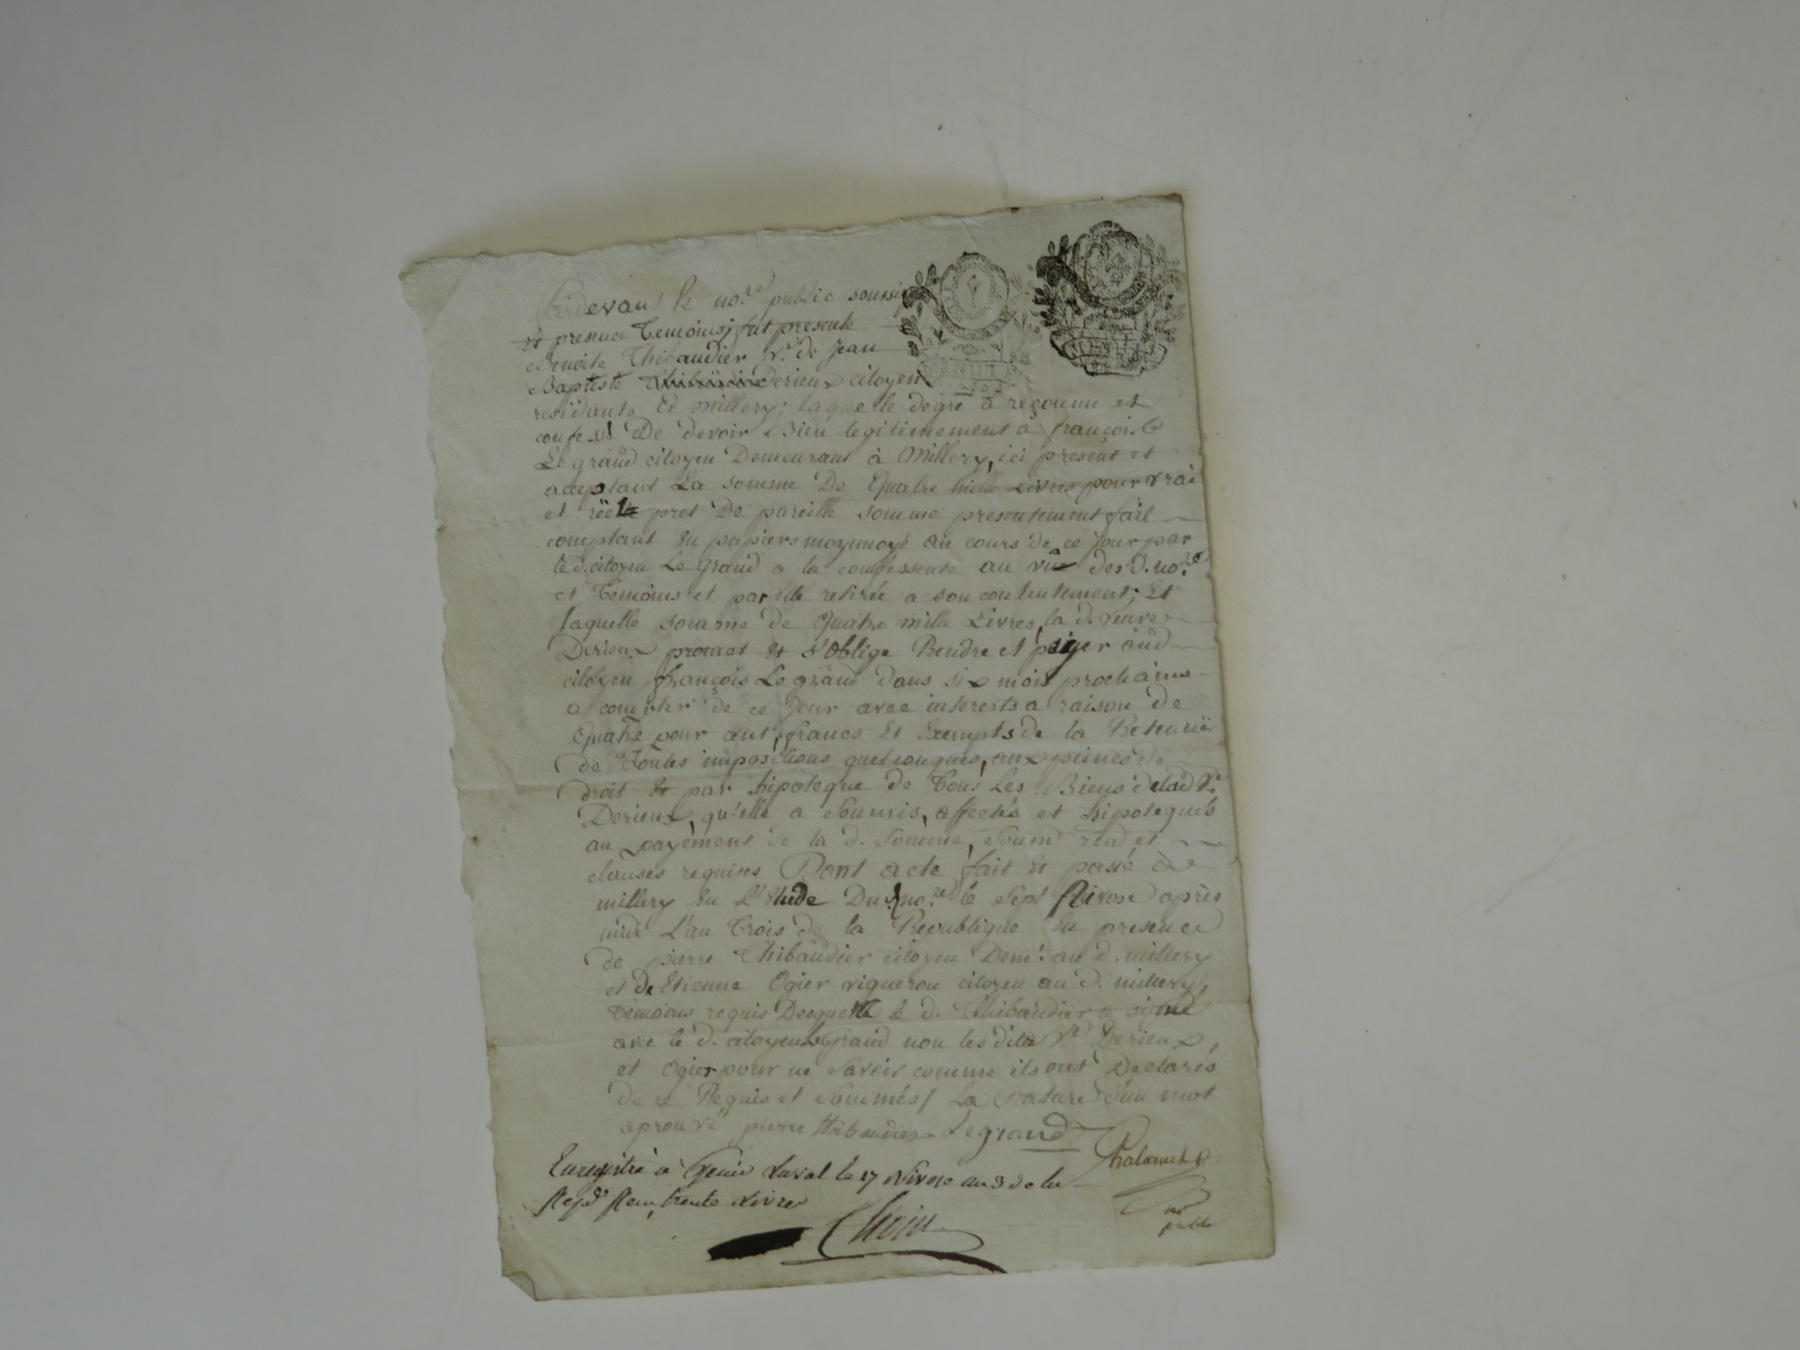 Pardevant le no.re public soussi
et presence Temoins, fut presente
Benoite Thibaudier v.e de Jean
Baptiste Derieux citoyen
residante Et millery; laquelle degré a reconnu et
confessé De devoir Bien legitimement a françois
Le grand citoyen Demeurant à Millery, ici present et
acceptant La somme De Quatre mille Livres pour vrai
et réel pret De pareille somme presentement fait
comptant En papiers monnoyé au cours de ce Jour par
le d. citoyen Le grand a la confessente au vû des d. no.re
et Temoins et par elle retirée a son contentement; Et
laquelle somme de Quatre mille Livres, la d. veuve
Derieux promet Et s'oblige Rendre et payer aud
citoyen françois Le grand dans six mois prochains
a compter de ce Jour avec interests a raison de
Quatre pour cent, francs Et Exempts de la Retenüe
de Toutes impositions quelconques, aux peines de
droit Et par hipoteque de Tous Les Biens de lad V.e
Derieux, qu'elle a Soumis, affectés et hipotequés
au payement de la d. Somme, Soumd rend et
clauses requises Dont acte fait Et passé a
millery En L'Etude Dud no.re le Sept Nivose après
midi L'an Trois de la Republique En presence
de pierre Thibaudier citoyen Dem.t au d. millery
et de Etienne Ogier vigneron citoyen au d. millery
Temoins requis Desquels le d. Thibaudier a signé
avec le d. citoyen Legrand non les dites V.e Derieux,
et Ogier pour ne Savoir comme ils ont Declarés
de ce Requis et Sommés / La Rature d'un mot
aprouvé pierre thibaudier Legrand
Enregistré a Genis Laval le 17 Nivose an 3 de la
Rep. Reçu trente Livres
no
public